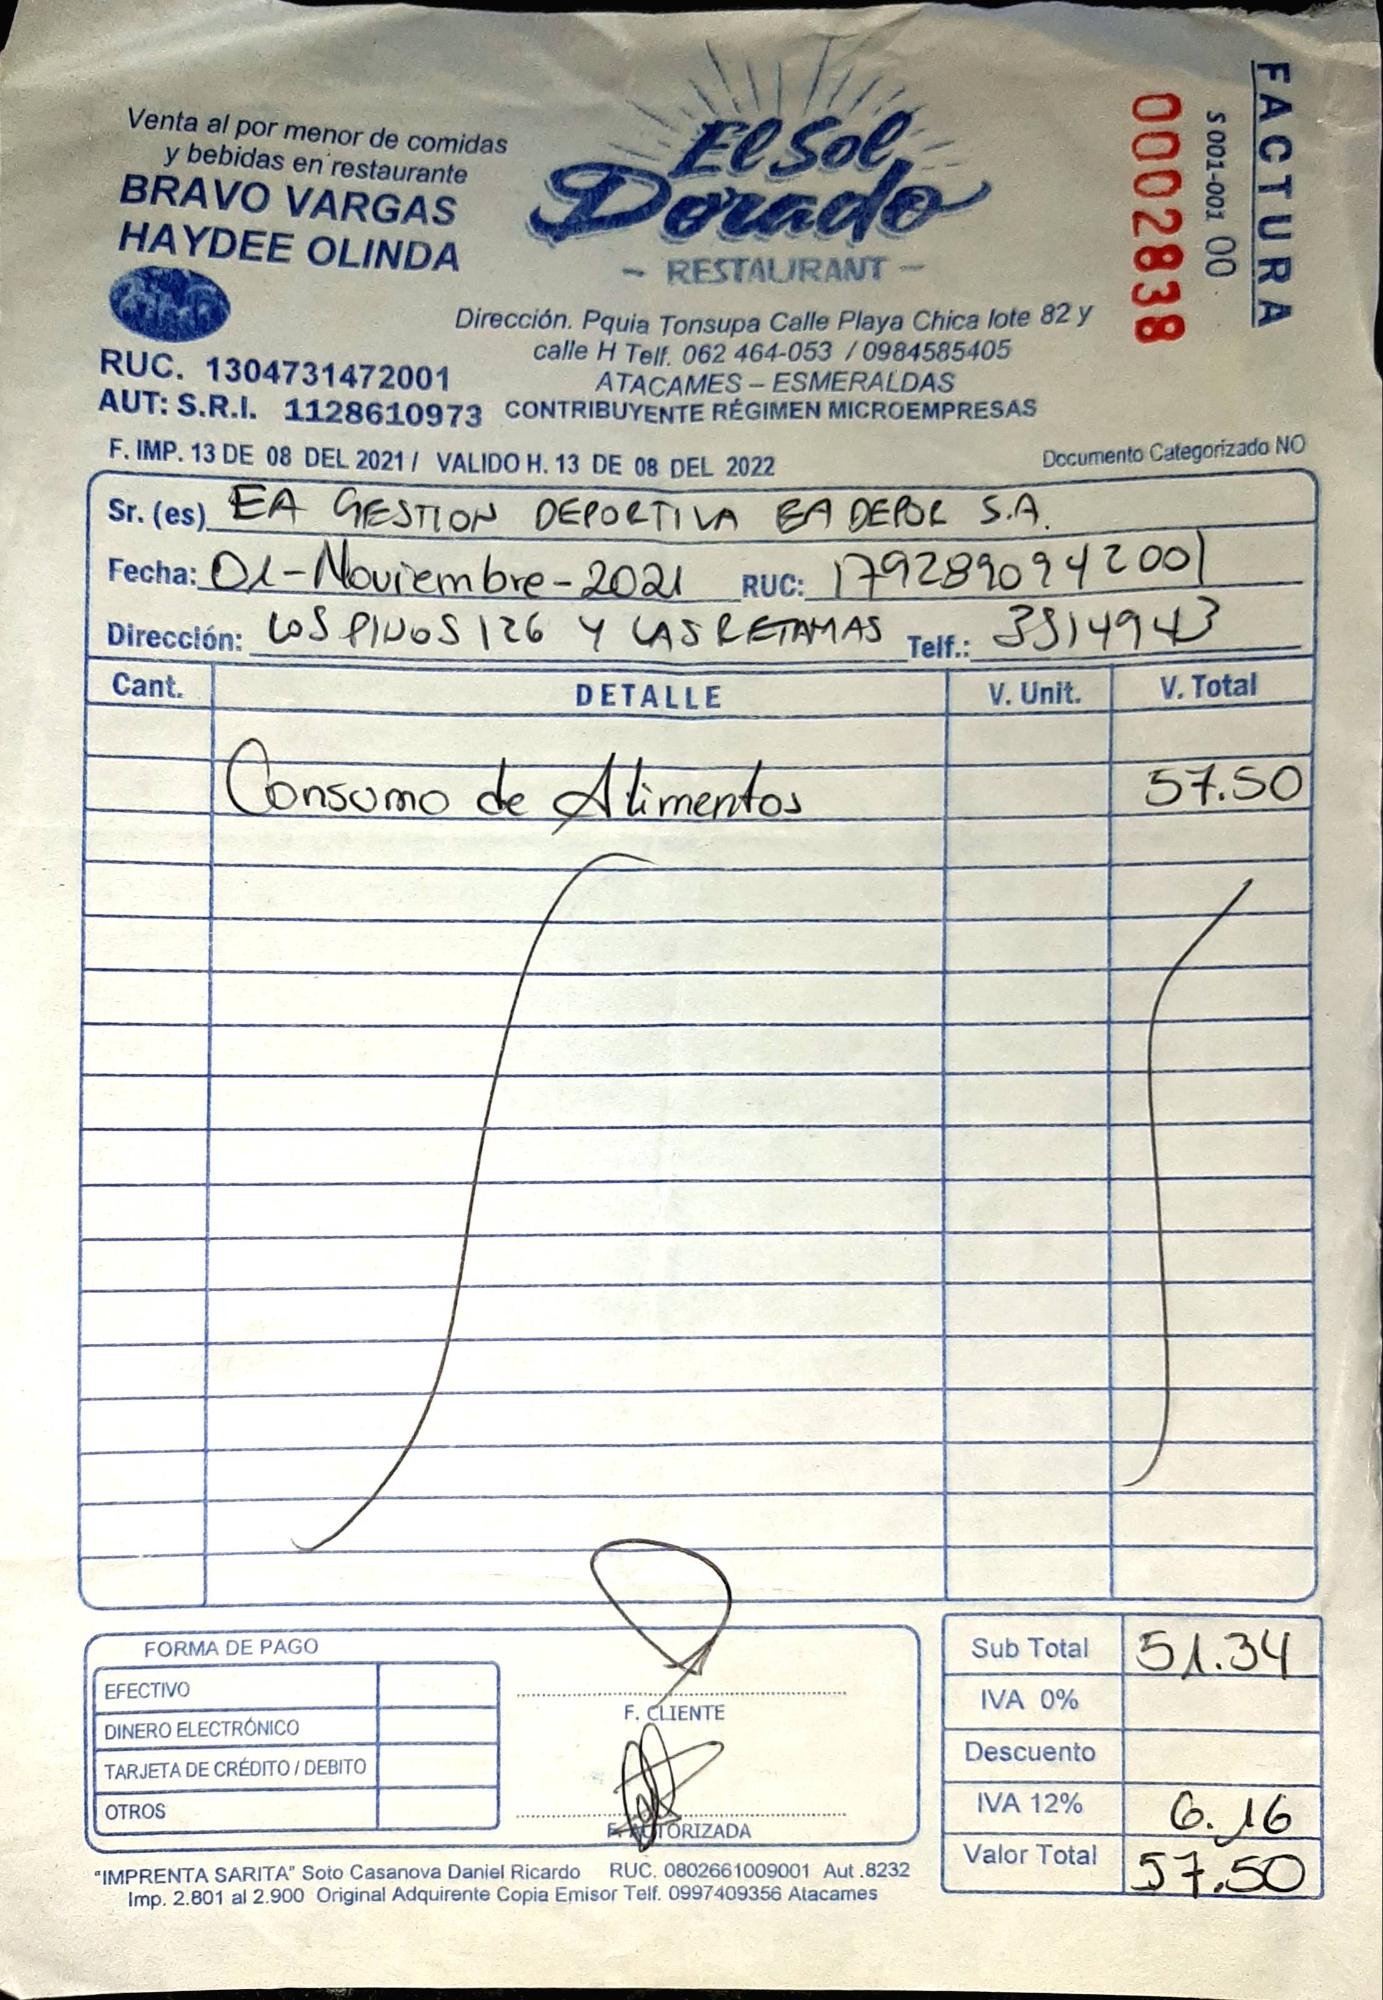 Venta al por menor de comidas
y bebidas en restaurante
BRAVO VARGAS
HAYDEE OLINDA
El Sol
Dorado
- RESTAURANT -
FACTURA
S 001-001 00
0002838
Dirección. Pquia Tonsupa Calle Playa Chica lote 82 y
calle H Telf. 062 464-053 / 0984585405
ATACAMES – ESMERALDAS
RUC. 1304731472001
AUT: S.R.I. 1128610973 CONTRIBUYENTE RÉGIMEN MICROEMPRESAS
F. IMP. 13 DE 08 DEL 2021 / VALIDO H. 13 DE 08 DEL 2022
Documento Categorizado NO
Sr. (es) EA GESTION DEPORTIVA EA DEPOR S.A.
Fecha: 01-Noviembre-2021 RUC: 1792890942001
Dirección: LOS PINOS 126 Y LAS RETAMAS Telf.: 3514943
Cant. DETALLE V. Unit. V. Total
Consumo de Alimentos 57.50
FORMA DE PAGO
EFECTIVO
DINERO ELECTRÓNICO
TARJETA DE CRÉDITO / DEBITO
OTROS
F. CLIENTE
F. AUTORIZADA
Sub Total 51.34
IVA 0%
Descuento
IVA 12% 6.16
Valor Total 57.50
"IMPRENTA SARITA" Soto Casanova Daniel Ricardo RUC. 0802661009001 Aut .8232
Imp. 2.801 al 2.900 Original Adquirente Copia Emisor Telf. 0997409356 Atacames